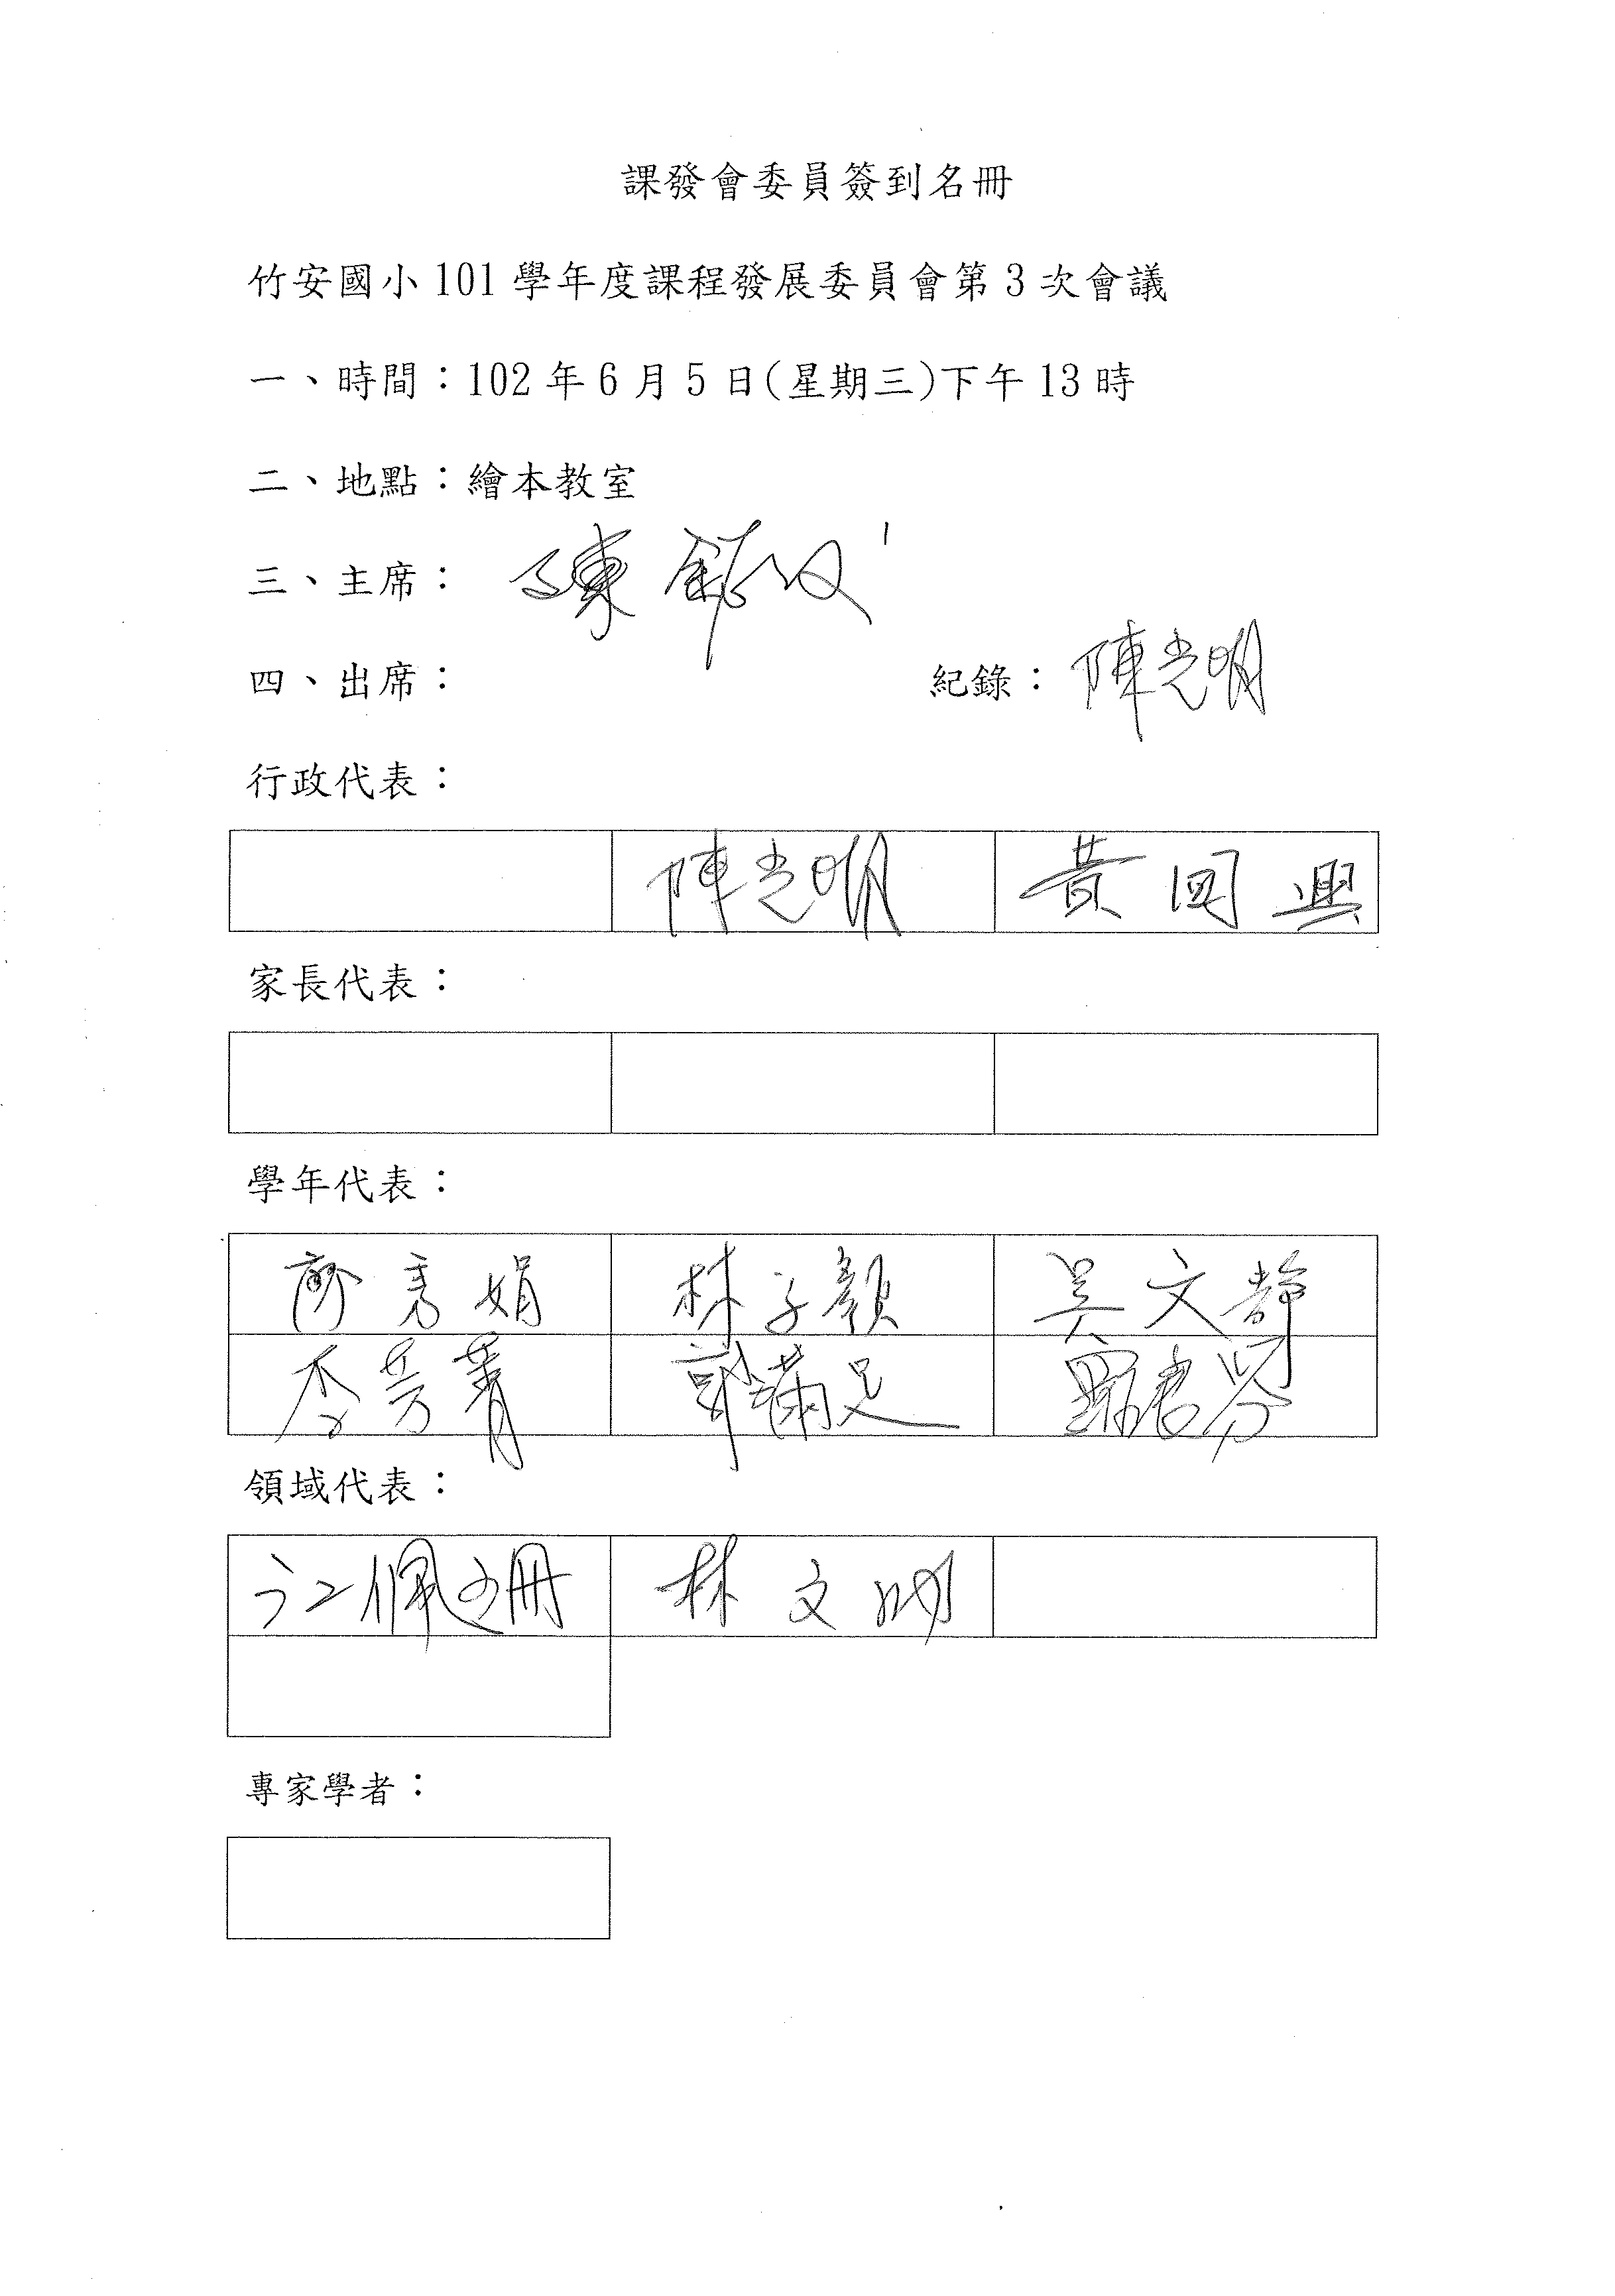 課發會委員簽到名冊
竹安國小 101 學年度課程發展委員會第 3 次會議
一、時間：102 年 6 月 5 日(星期三)下午 13 時
二、地點：繪本教室
三、主席：陳
四、出席：
紀錄：陳光明
行政代表：
陳光明 黃国興
家長代表：
學年代表：
廖秀娟 林子顏 吳文靜
李芳菁 郭滿足 羅君芬
領域代表：
江佩珊 林文
專家學者：